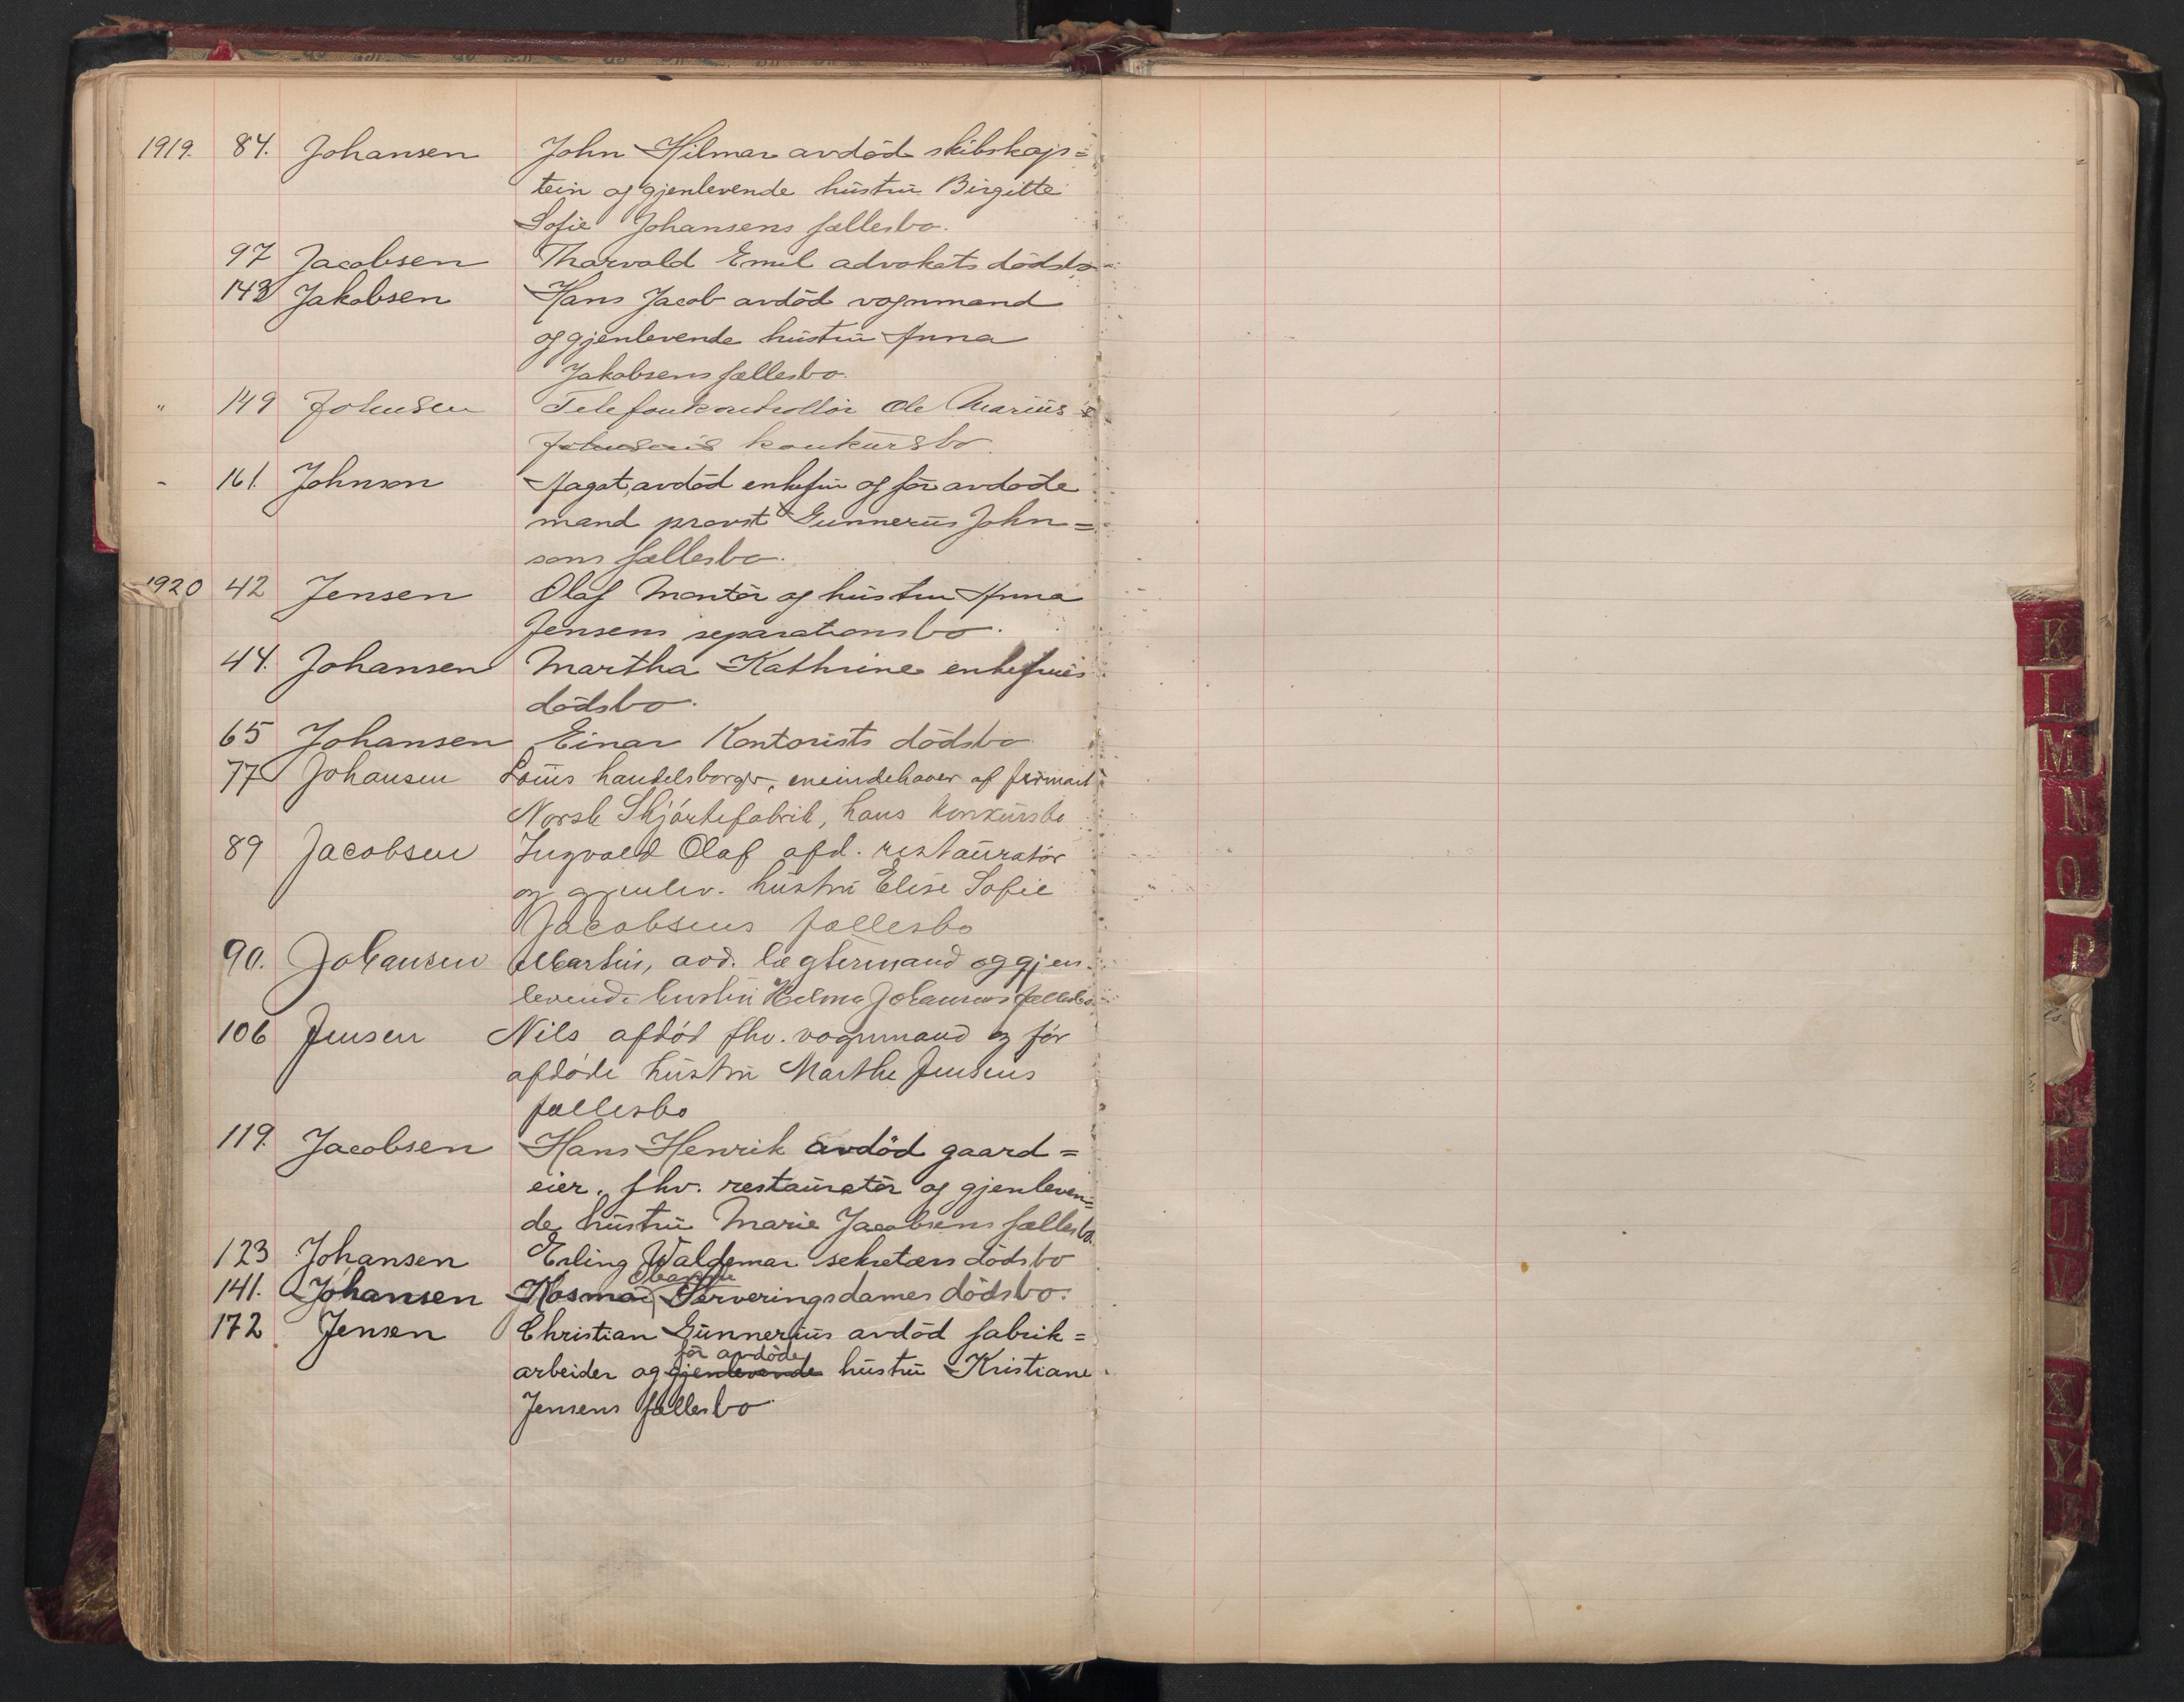 1919. 84. Johansen John Hilmar avdöd skibskap=
tein og gjenlevende hustru Birgitte
Sofie Johansens fællesbo.
97 Jacobsen Thorvald Emil advokats dödsbo
143 Jakobsen Hans Jacob avdöd vognmand
og gjenlevende hustru Anna
Jakobsens fællesbo.
" 149 Johnsen Telefonkontrollör Ole Marius's
Johnsens konkursbo.
- 161. Johnson Aagot, avdöd enkefru og för avdöde
mand provst Gunnerus John=
sons fællesbo.
1920 42 Jensen Olaf Montör og hustru Anna
Jensens separationsbo.
44. Johansen Martha Kathrine enkefrues
dödsbo.
65 Johansen Einar Kontorists dödsbo
77 Johansen Louis handelsborger, eneindehaver af firmaet
Norsk Skjórtefabrik, hans konkursbo
89 Jacobsen Ingvald Olaf afd. restauratór
og gjenlev. hustru Elise Sofie
Jacobsens fællesbo
90. Johansen Martin, avd. lægtermand og gjen-
levende hustru Helma Johansens fællesbo
106 Jensen Nils afdód fhv. vognmand og fór
afdóde hustru Marthe Jensens
fællesbo
119. Jacobsen Hans Henrik avdöd gaard=
eier, fhv. restauratör og gjenleven=
de hustru Marie Jacobsens fællesbo.
123 Johansen Erling Waldemar sekretærs dödsbo
141. Johansen Kosma Serveringsdames dödsbo.
172 Jensen Christian Gunnerius avdöd fabrik=
för avdöde
arbeider og gjenlevende hustru Kristiane
Jensens fællesbo
K
L
M
N
O
P
S
T
U
V
X
Y